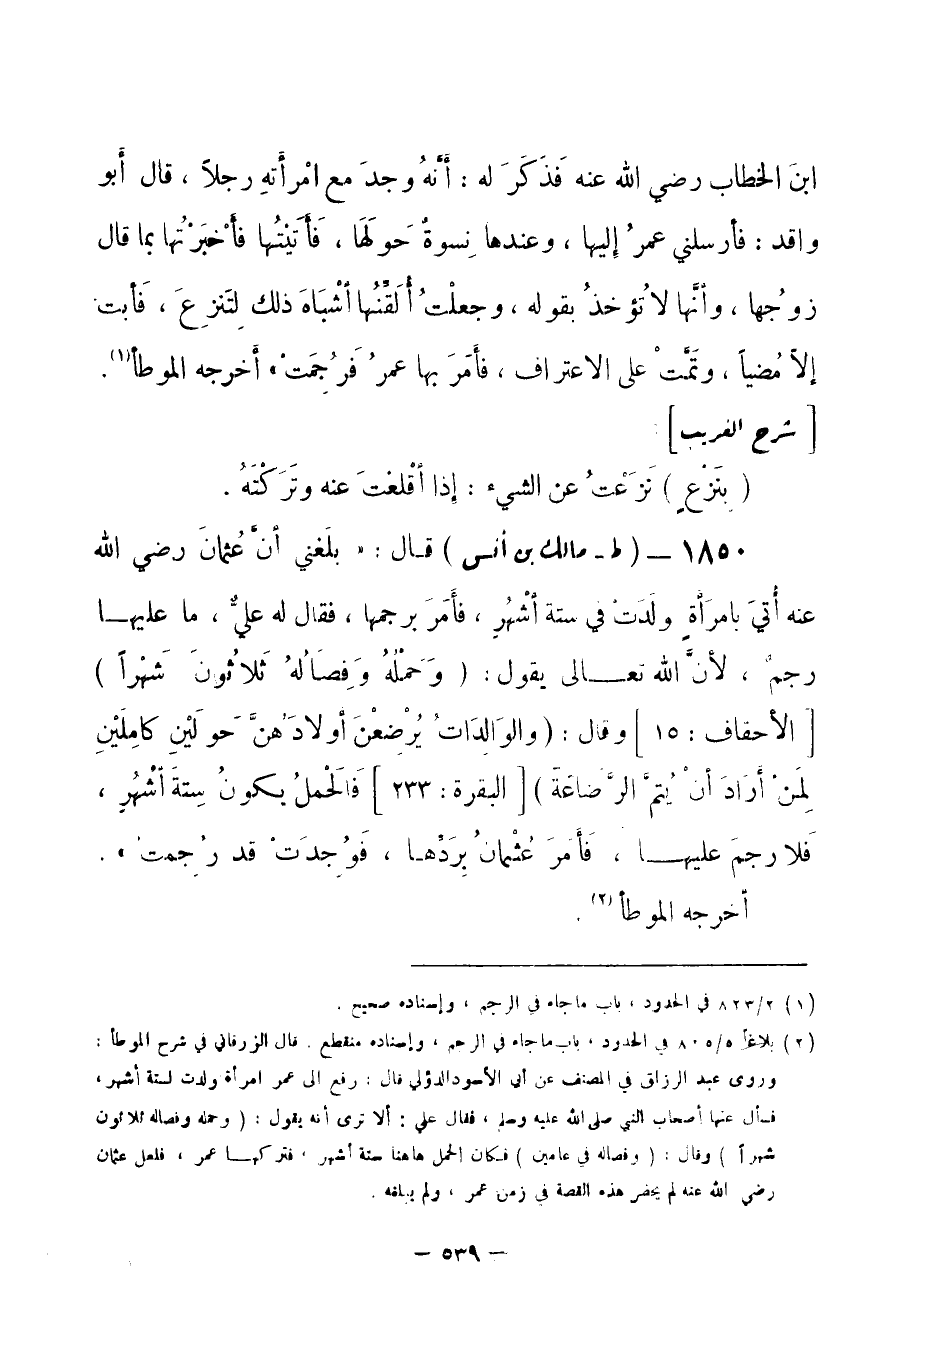 ابنَ الخطاب رضي الله عنه فَذَكَرَ له : أَنَّهُ وجدَ مع امْرأَتهِ رجلاً ، قال أَبو
واقد : فأرسلني عمرُ إليها ، وعندها نِسوةٌ حَولَهَا ، فَأَتَيْتُها فأَخْبَرْتُها بما قال
زوُجها ، وأنَّها لا تُؤخذُ بقوله ، وجعلْتُ أُلَقِّنُها أشْبَاهَ ذلك لِتَنزِعَ ، فَأَبت
إلاَّ مُضياً ، وتَمَّتْ على الاعتراف ، فأَمَرَ بها عمرُ فَرُجِمَتْ » أَخرجه الموطأ(١).
[ شرح الغريب ]
( بِنَزْعٍ ) نَزَعْتُ عن الشيء : إذا أقْلَعْتَ عنه وتَرَكْتَهُ .
١٨٥٠ – ( ط ـ مالك بن أنس ) قال : « بلَغني أنَّ عُثمانَ رضي الله
عنه أُتيَ بامرَأَةٍ ولَدَتْ في ستة أشْهُرٍ ، فأَمَرَ برجمها ، فقال له عليٌّ ، ما عليها
رجمٌ ، لأنَّ الله تعالى يقول : ( وَحَمْلُهُ وَفِصَالُهُ ثَلاثُونَ شَهْراً )
[ الأحقاف : ١٥ ] وقال : ( والوَالِدَاتُ يُرْضِعْنَ أَولادَهُنَّ حَولَيْنِ كامِلَيْنِ
لِمَنْ أَرَادَ أنْ يُتمَّ الرَّضاعَةَ ) [ البقرة : ٢٣٣ ] فَالَحْملُ يكونُ سِتةَ أَشْهُرٍ ،
فَلا رجمَ عليها ، فَأَمَرَ عُثْمانُ بِرَدِّها ، فَوُجدَتْ قد رُجمتْ » .
أخرجه الموطأ (٢) .
(١) ٨٢٣/٢ في الحدود ، باب ماجاء في الرجم ، وإسناده صحيح .
(٢) بلاغاً ٨٠٥/٥ في الحدود ، باب ماجاء في الرجم ، وإسناده منقطع . قال الزرقاني في شرح الموطأ :
وروى عبد الرزاق في المصنف عن أبي الأسود الدؤلي قال : رفع الى عمر امرأة ولدت لستة أشهر ،
فسأل عنها أصحاب النبي صلى الله عليه وسلم ، فقال علي : ألا ترى أنه يقول : ( وحمله وفصاله ثلاثون
شهراً ) وقال : ( وفصاله في عامين ) فكان الحمل هاهنا ستة أشهر ، فتركها عمر ، فلعل عثمان
رضي الله عنه لم يحضر هذه القصة في زمن عمر ، ولم يبلغه .
– ٥٣٩ –